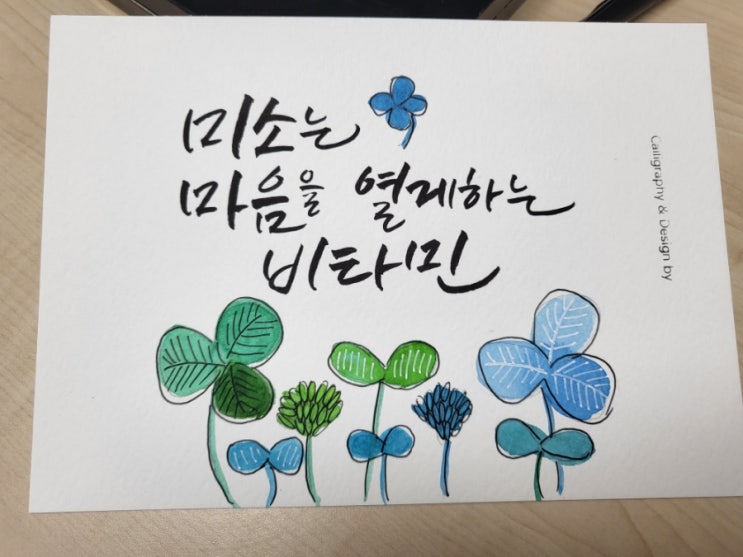 미소는
마음을 열게하는
비타민
Calligraphy & Design by